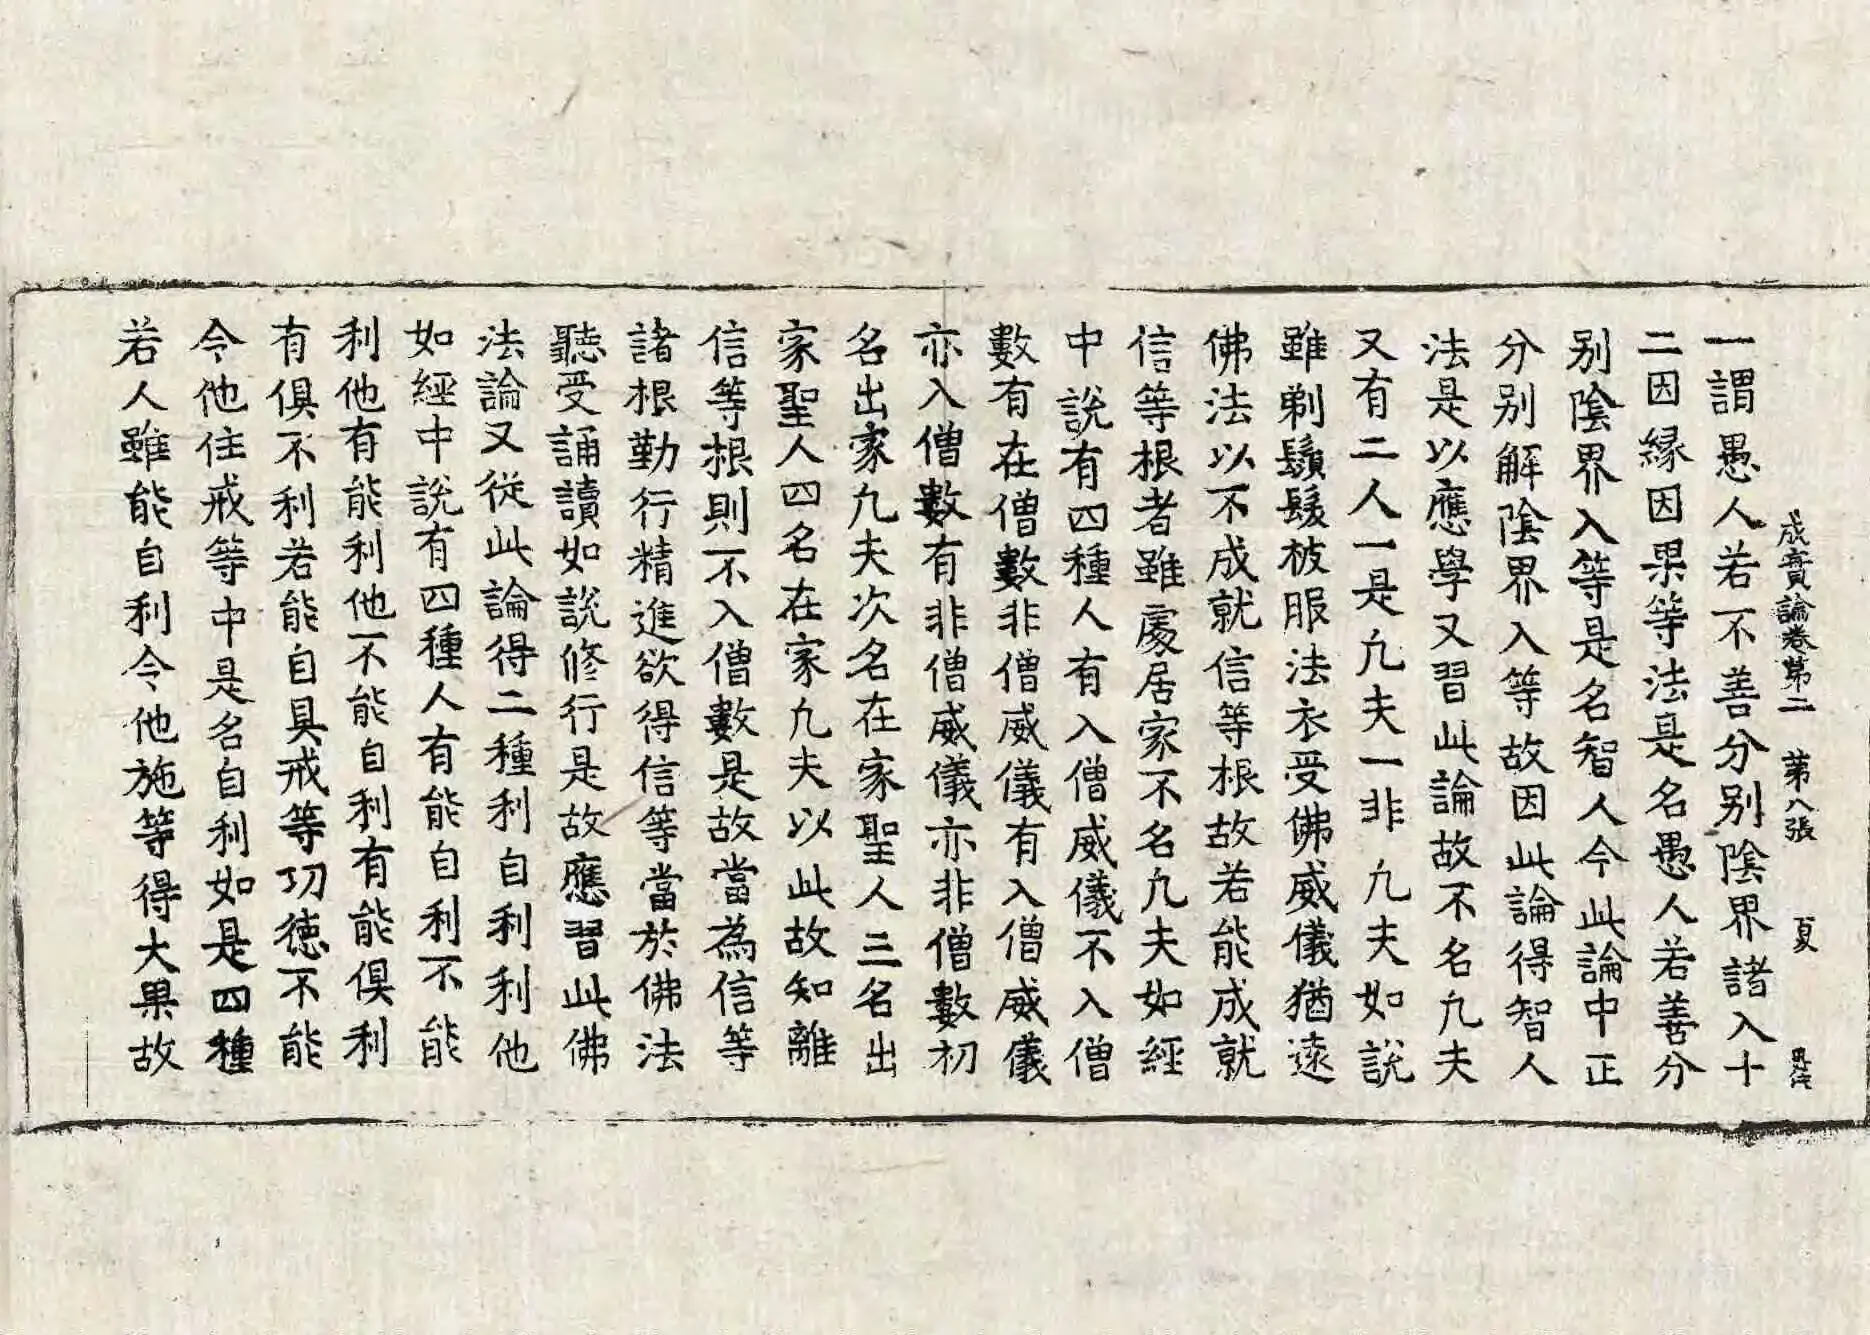 成實論卷第二　第八張　夏
一謂愚人若不善分别陰界諸入十
二因緣因果等法是名愚人若善分
别陰界入等是名智人今此論中正
分别解陰界入等故因此論得智人
法是以應學又習此論故不名凢夫
又有二人一是凢夫一非凢夫如說
雖剃鬚髮被服法衣受佛威儀猶遠
佛法以不成就信等根故若能成就
信等根者雖處居家不名凢夫如經
中說有四種人有入僧威儀不入僧
數有在僧數非僧威儀有入僧威儀
亦入僧數有非僧威儀亦非僧數初
名出家凢夫次名在家聖人三名出
家聖人四名在家凢夫以此故知離
信等根則不入僧數是故當為信等
諸根勤行精進欲得信等當於佛法
聽受誦讀如說修行是故應習此佛
法論又從此論得二種利自利利他
如經中說有四種人有能自利不能
利他有能利他不能自利有能俱利
有俱不利若能自具戒等功德不能
令他住戒等中是名自利如是四種
若人雖能自利令他施等得大果故